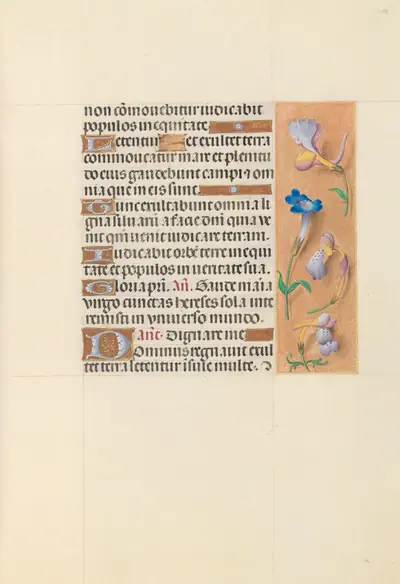 non cōmovebitur iudicabit
populos in equitate
Letentur et exultet terra
commoveatur mare et plenitu
do eius gaudebunt campi ⁊ om
nia que in eis sunt.
Tunc exultabunt omnia li
gna silvarū a facie dn̄i quia ve
nit qm̄ venit iudicare terram.
Iudicabit orbē terre in equi
tate et populos in veritate sua.
Gloria pr̄i. An̄. Gaude maria
virgo cunctas hereses sola inte
remisti in universo mundo.
Ant. Dignare me
Dominus regnavit exul
tet terra letentur īsule multe.